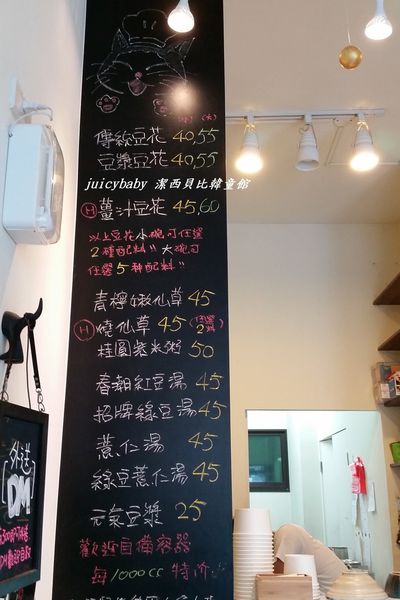 (小) (大)
傳統豆花 40,55
豆漿豆花 40,55
juicybaby 潔西貝比韓童館
Ⓗ薑汁豆花 45,60
以上豆花小碗可任選
2種配料!! 大碗可
任選5種配料!!
青檸嫩仙草 45
Ⓗ燒仙草 45 (任選2料)
桂圓紫米粥 50
春朝紅豆湯 45
招牌綠豆湯 45
薏仁湯 45
綠豆薏仁湯 45
元氣豆漿 25
歡迎自備容器
每1000cc 特价
外送
DM